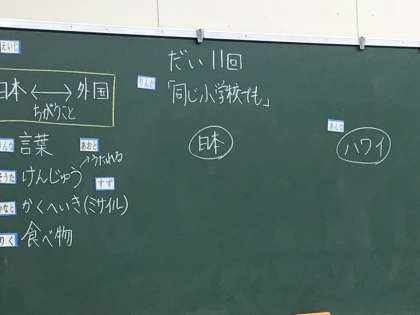 えいじ
日本 ⟷ 外国
ちがうこと
りんな 言葉 あおと
そうた けんじゅう →うたれる すず
かなと かくへいき(ミサイル)
りく 食べ物
だい11回
りんか 「同じ小学校でも」
日本
ハワイ